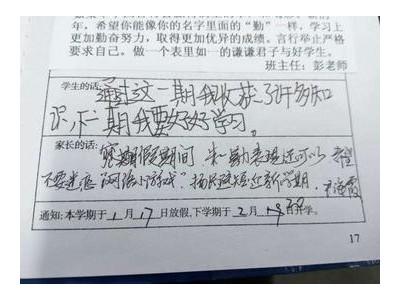 年，希望你能像你的名字里面的“勤”一样，学习上
更加勤奋努力，取得更加优异的成绩。言行举止严格
要求自己。做一个表里如一的谦谦君子与好学生。
班主任：彭老师
学生的话：通过这一期我收获了许多知
识，下一期我要好好学习。
家长的话：寒期假期间 朱勤表现还可以 希望
不要迷恋“网络小游戏”扬长避短迎新学期．
通知：本学期于1月17日放假，下学期于2月19日开学。
17